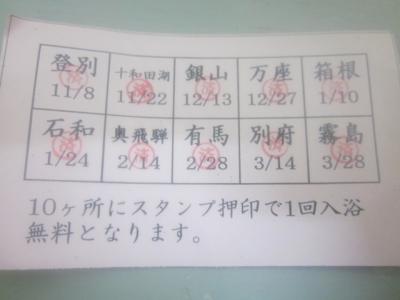 登別 十和田湖 銀山 万座 箱根
11/8 11/22 12/13 12/27 1/10
済 済 済 済 済
石和 奥飛騨 有馬 別府 霧島
1/24 2/14 2/28 3/14 3/28
済 済 済 済 済
10ヶ所にスタンプ押印で1回入浴
無料となります。